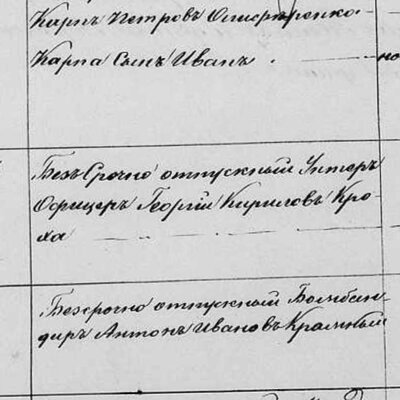 Карпъ Петровъ
Карпа Сынъ Иванъ
Безъ Срочно отпускный Унтеръ
Офицеръ Георгій Кириловъ Кро-
ха
Безсрочно отпускный Бомбан-
диръ Антонъ Ивановъ Крамный